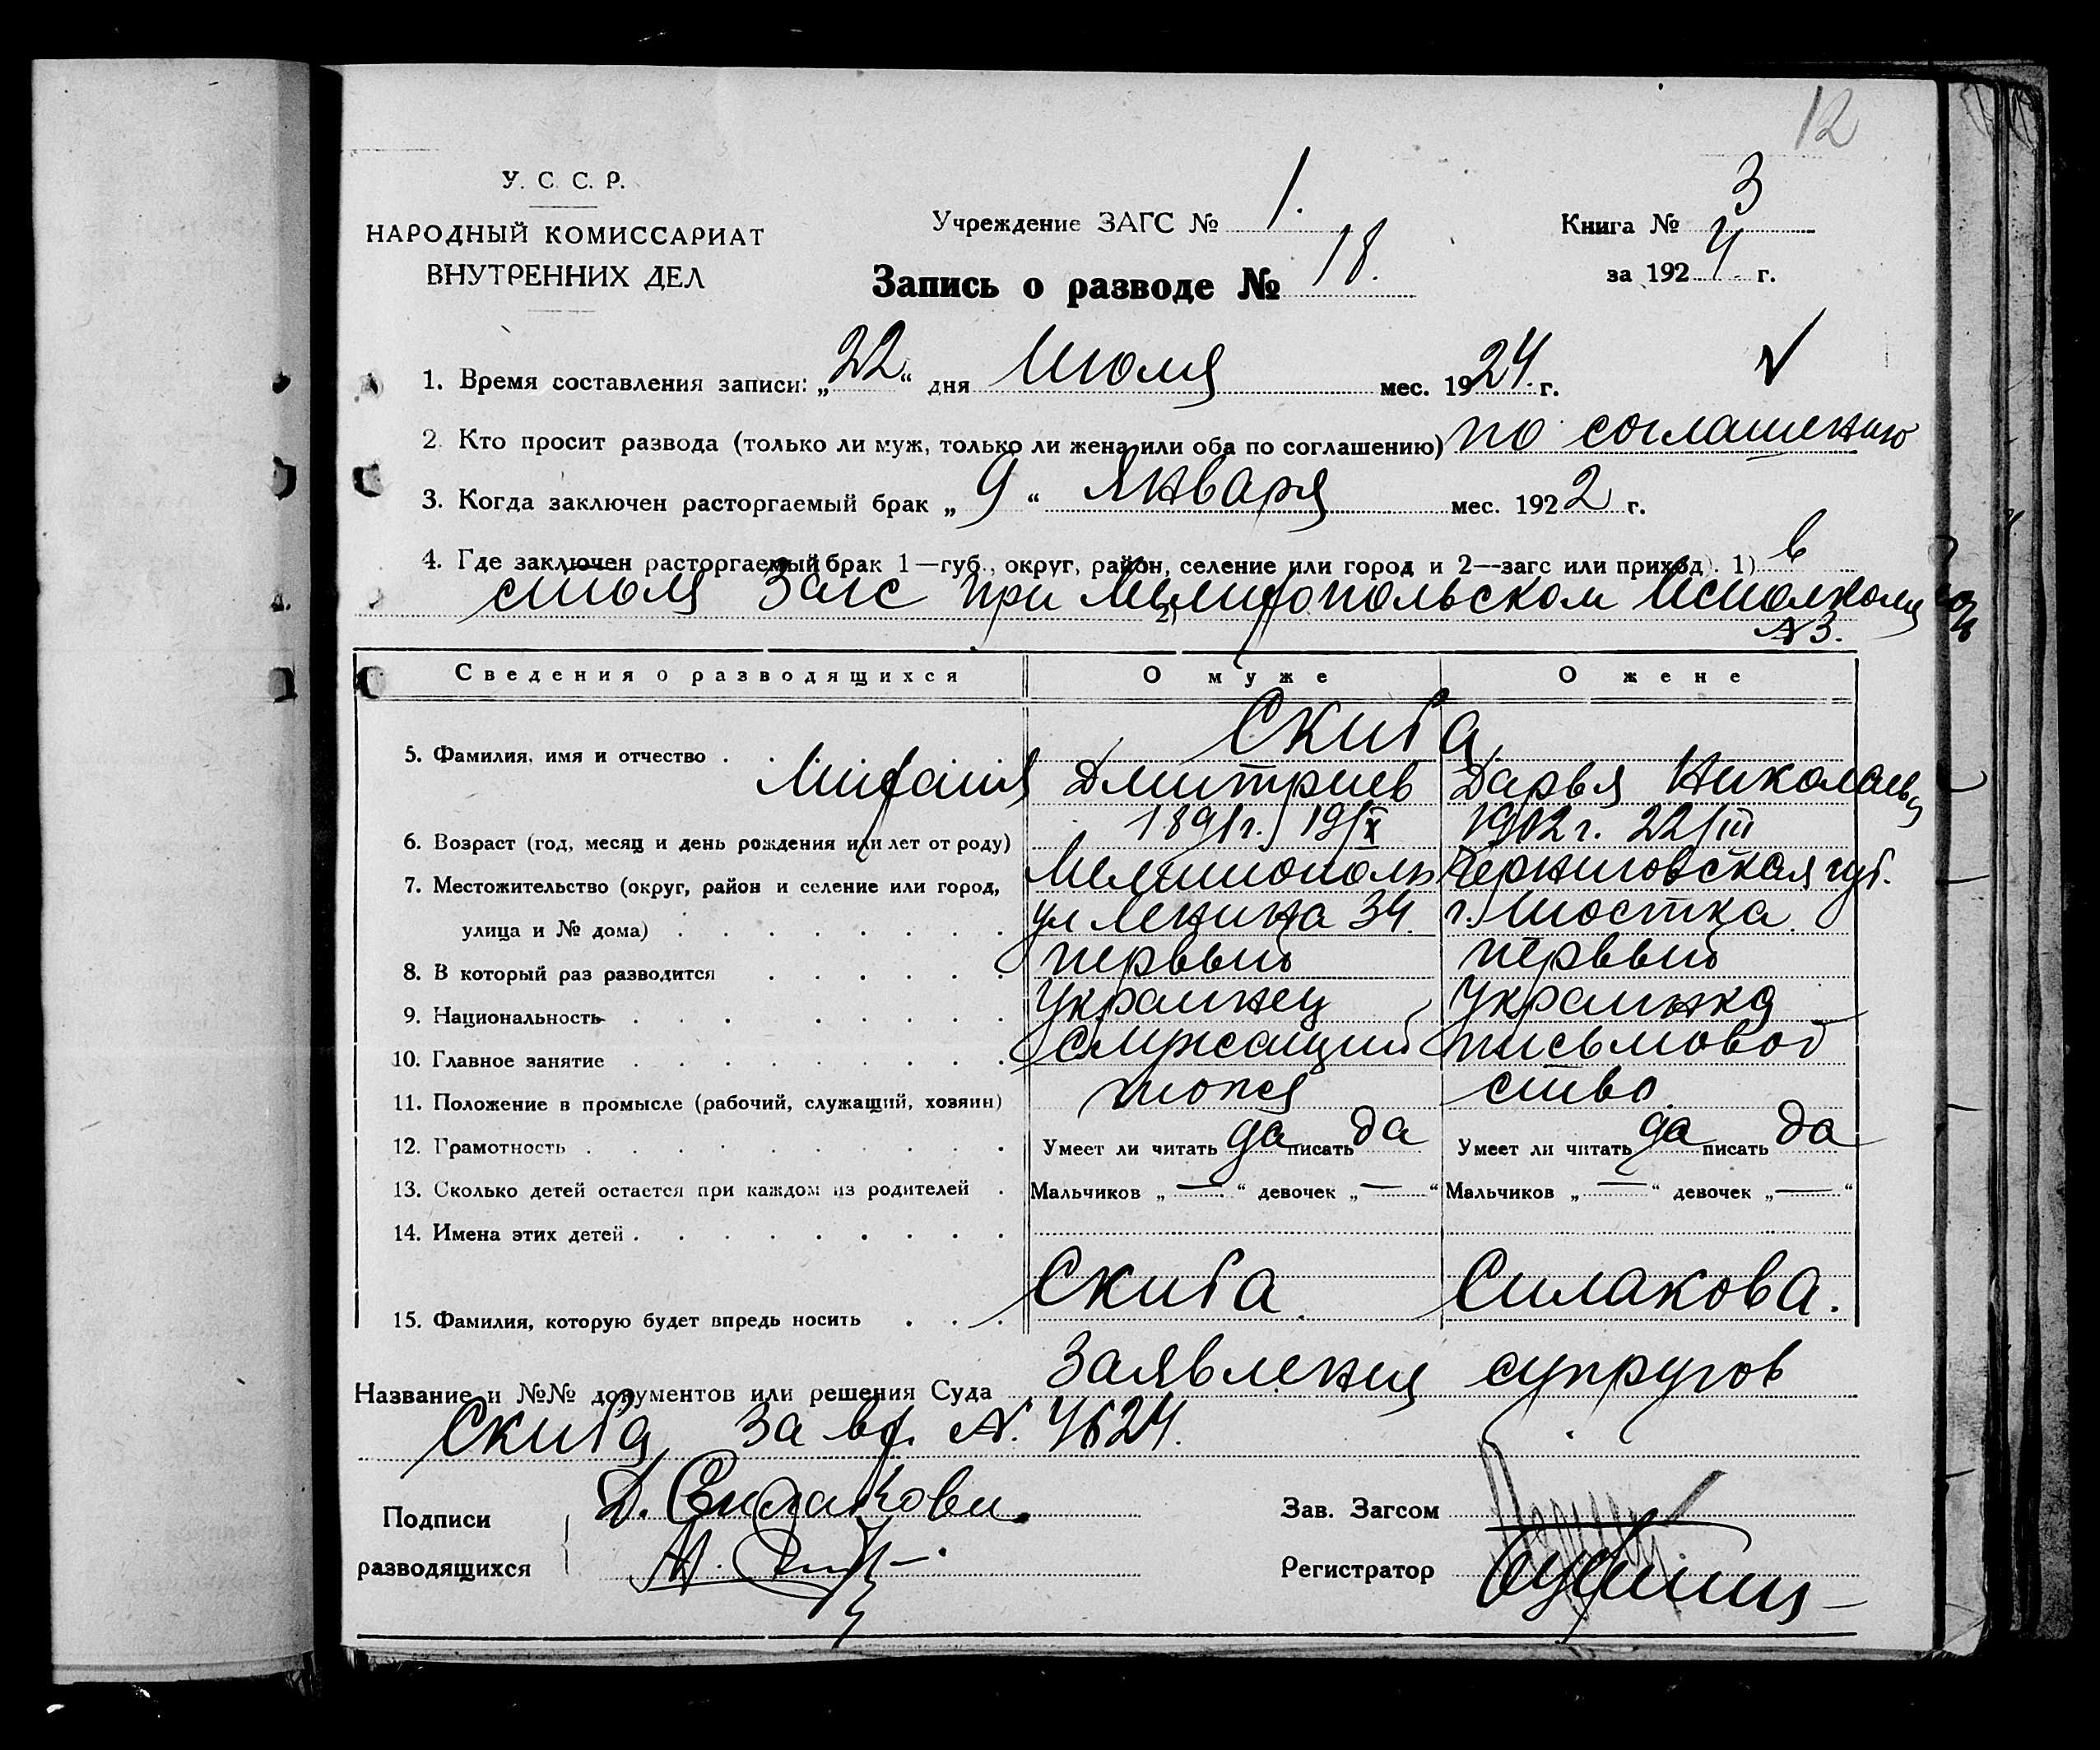 12
У. С. С. Р.
НАРОДНЫЙ КОМИССАРИАТ
ВНУТРЕННИХ ДЕЛ
Учреждение ЗАГС № 1.
Книга № 3
за 1924 г.
Запись о разводе № 18.
1. Время составления записи: „22“ дня Июля мес. 1924. г.
2. Кто просит развода (только ли муж, только ли жена или оба по соглашению) по соглашению
3. Когда заключен расторгаемый брак „9“ Января мес. 1922 г.
4. Где заключен расторгаемый брак 1—губ., округ, район, селение или город и 2—загс или приход). 1) в
столе Загс при 2) Мелитопольском Исполкоме
№3.
Сведения о разводящихся О муже О жене
Скиба
5. Фамилия, имя и отчество
Дмитриев Дарья Николаев
6. Возраст (год, месяц и день рождения или лет от роду) 1891г. 19/X 1902г. 22/III
7. Местожительство (округ, район и селение или город, Мелитополь Черниговская губ.
улица и № дома) ул Ленина 34. г. Шостка.
8. В который раз разводится первый первый
9. Национальность Украинец Украинка
10. Главное занятие служащий письмовод
11. Положение в промысле (рабочий, служащий, хозяин) ство.
12. Грамотность Умеет ли читать да писать да Умеет ли читать да писать да
13. Сколько детей остается при каждом из родителей Мальчиков „—“ девочек „—“ Мальчиков „—“ девочек „—“
14. Имена этих детей
15. Фамилия, которую будет впредь носить Скиба. Силакова.
Название и №№ документов или решения Суда Заявления супругов
Скиба за вх. №. 4624.
Подписи
разводящихся
Д. Силакова.
Зав. Загсом
Регистратор